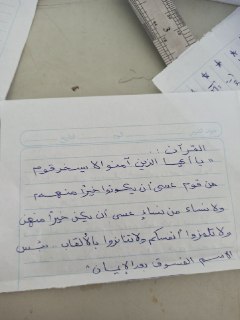 القرآن :
" يا أيها الذين آمنوا لا يسخر قوم
من قوم عسى أن يكونوا خيرًا منهم
ولا نساء من نساءٍ عسى أن يكن خيرًا منهن
ولا تلمزوا أنفسكم ولا تنابزوا بالألقاب بئس
الاسم الفسوق بعد الإيمان"